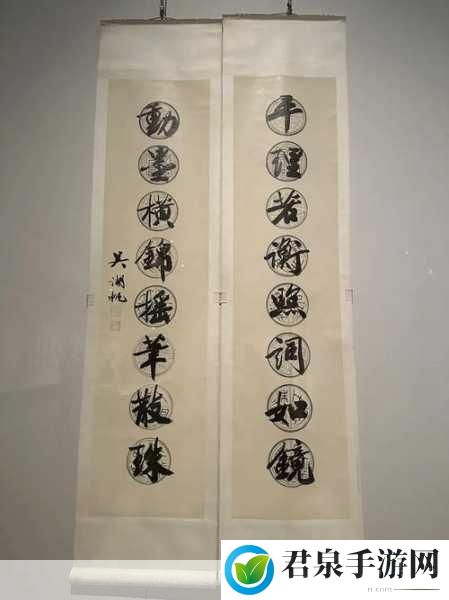 平理若衡照词如鏡
動墨横錦摇筆散珠
吴湖帆
君泉手游网